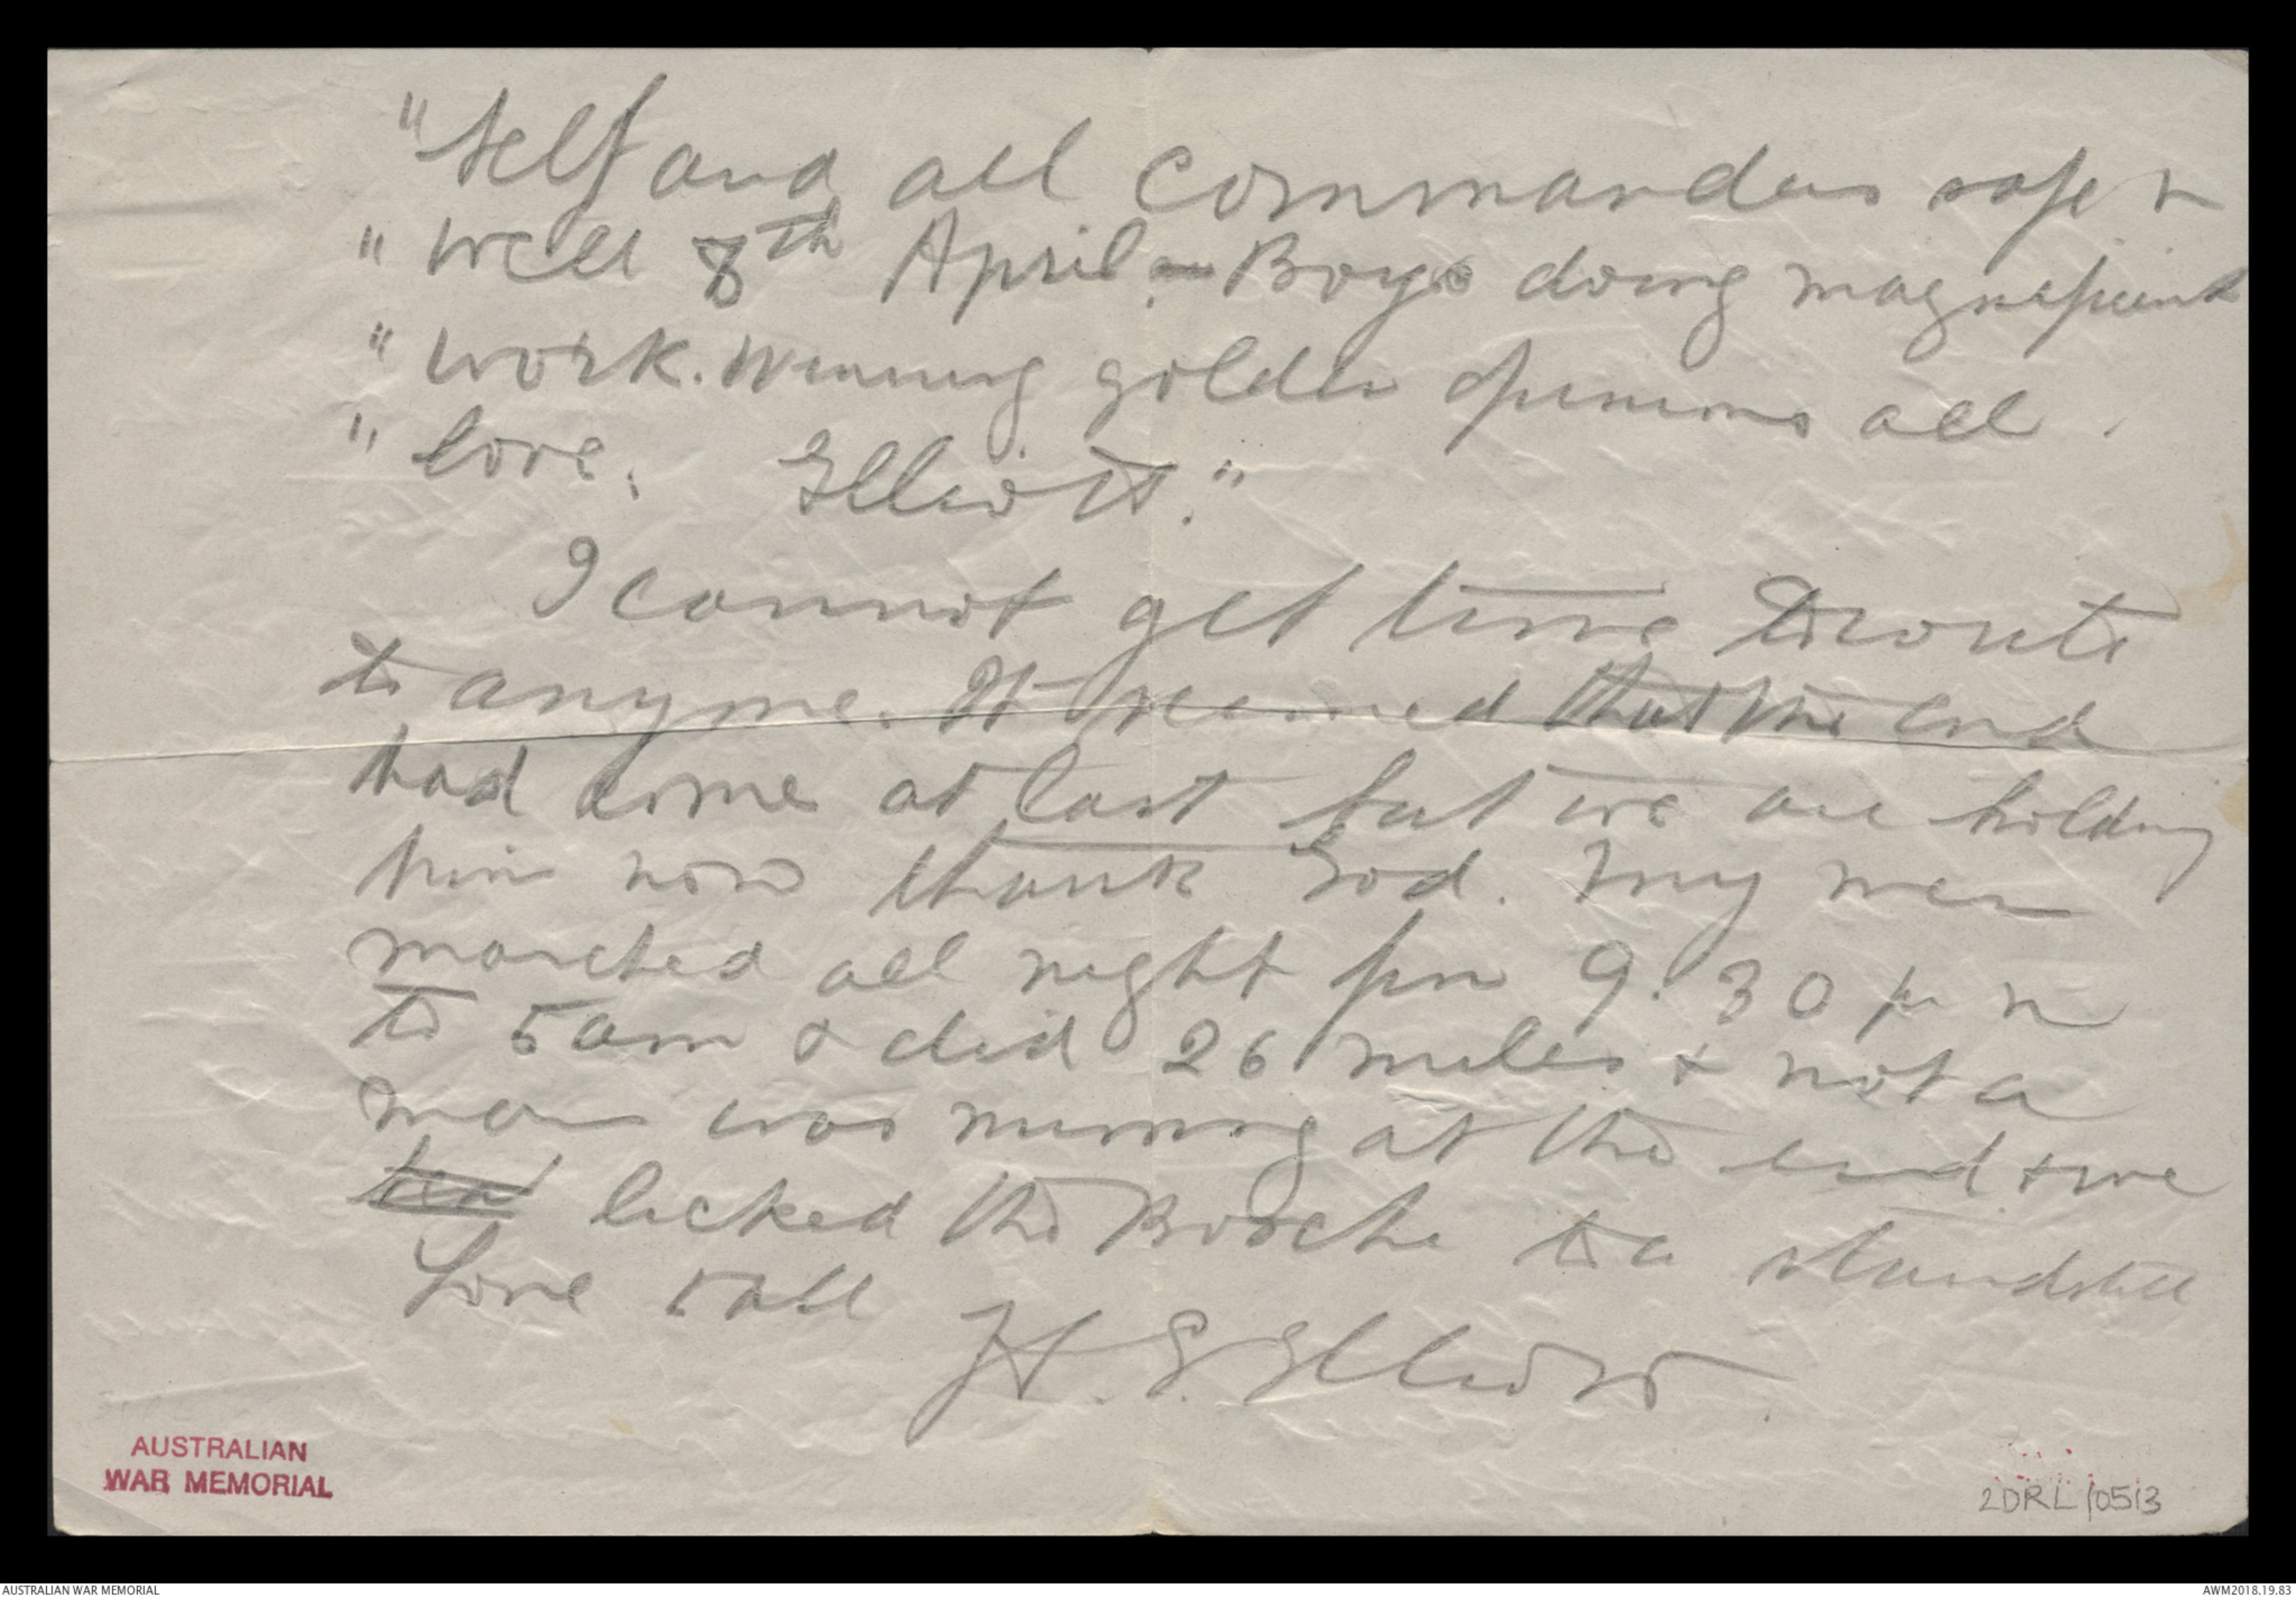 "Self and all Commanders safe &
"well 8th April - Boys doing magnificent
"work. Winning golden opinions all
"love. Elliott."
I cannot get time to write
to anyone. It seemed that the end
had come at last but we are holding
him now thank God. My men
marched all night from 9.30 pm
to 5am & did 26 miles & not a
man was missing at the end & we
licked the Bosche to a standstill
Love to all
H.E. Elliott
AUSTRALIAN
WAR MEMORIAL
2DRL/0513
AUSTRALIAN WAR MEMORIAL
AWM2018.19.83